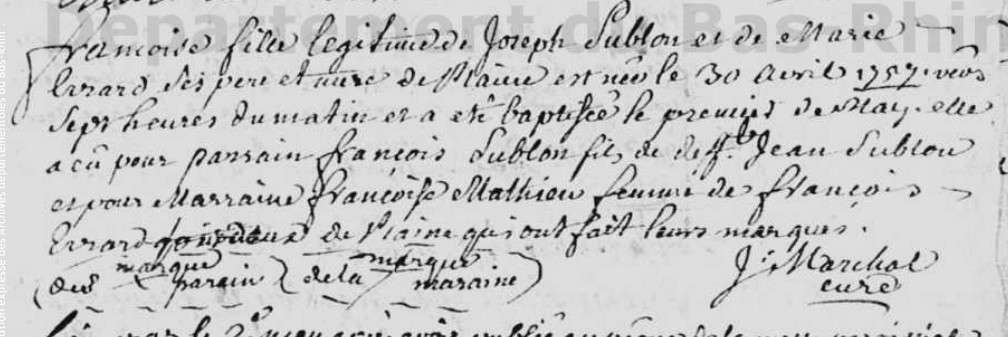 Departement du Bas-Rhin
francoise fille legitime de Joseph Sublon et de Marie
Evrard ses pere et mere de Plaine est née le 30 avril 1757. vers
sept heures du matin et a eté baptisée le premier de May. elle
a eû pour parrain françois Sublon fils de deff.t Jean Sublon
et pour Marraine françoise Mathieu femme de françois
Evrard tous deux de Plaine qui ont fait leurs marques.
marque marque J: Marchal
(du parein) (de la maraine) curé